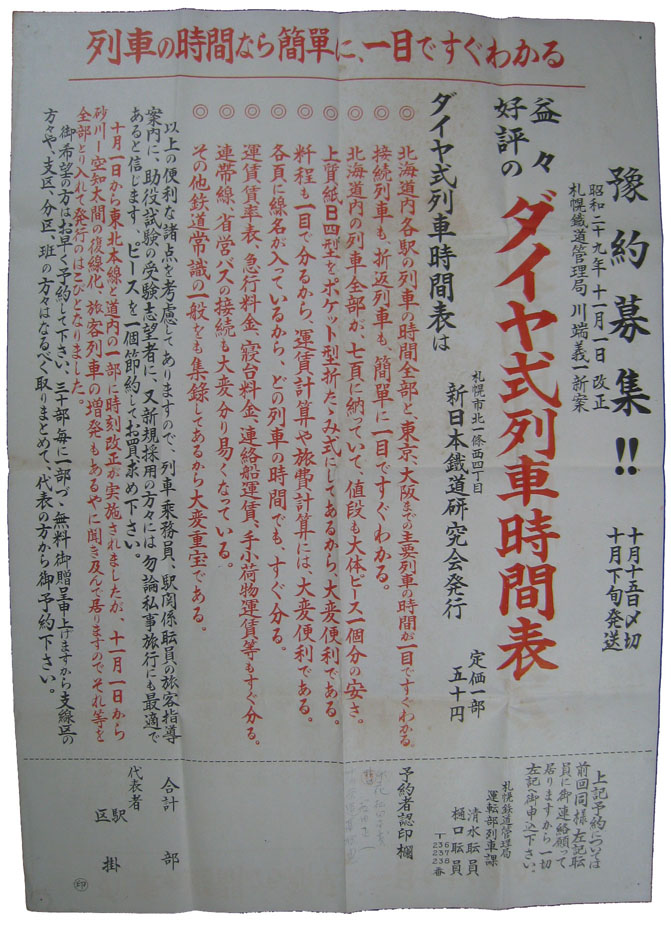 列車の時間なら簡單に、一目ですぐわかる
豫約募集!!
十月十五日〆切
十月下旬発送
昭和二十九年十一月一日 改正
札幌鐵道管理局 川端義一新案
益々
好評の
ダイヤ式列車時間表
定価一部
五十円
札幌市北一條西四丁目
新日本鐵道研究会発行
ダイヤ式列車時間表は
◎ 北海道内各駅の列車の時間全部と、東京、大阪までの主要列車の時間が一目ですぐわかる。
◎ 接続列車も、折返列車も、簡單に一目ですぐわかる。
◎ 北海道内の列車全部が、七頁に納っていて、値段も大体ピース一個分の安さ。
◎ 上質紙B四型をポケット型折たゝみ式にしてあるから、大変便利である。
◎ 粁程も一目で分るから、運賃計算や旅費計算には、大変便利である。
◎ 各頁に線名が入っているから、どの列車の時間でも、すぐ分る。
◎ 運賃賃率表、急行料金、寝台料金、連絡船運賃、手小荷物運賃等もすぐ分る。
◎ 連帯線、省営バスの接続も大変分り易くなっている。
◎ その他鉄道常識の一般をも集録してあるから大変重宝である。
以上の便利な諸点を考慮してありますので、列車乗務員、駅関係職員の旅客指導
案内に、助役試験の受験志望者に、又新規採用の方々には勿論私事旅行にも最適で
あると信じます、ピースを一個節約してお買求め下さい。
十月一日から東北本線と道内の一部に時刻改正が実施されましたが、十一月一日から
砂川ー空知太間の復線化、旅客列車の増発もあるやに聞き及んで居りますのでそれ等を
全部とり入れて発行のはこびとなりました。
御希望の方はお早く予約して下さい、三十部毎に一部づゝ無料御贈呈申上げますから支線区の
方々や、支区、分区、班の方々はなるべく取りまとめて、代表の方から御予約下さい。
上記予約については
前回同様左記職
員に御連絡願って
居りますから一切
左記へ御申込下さい。
札幌鉄道管理局
運転部列車課
清水職員
樋口職員
予約者認印欄
合計 部
代表者
駅
区
掛
印